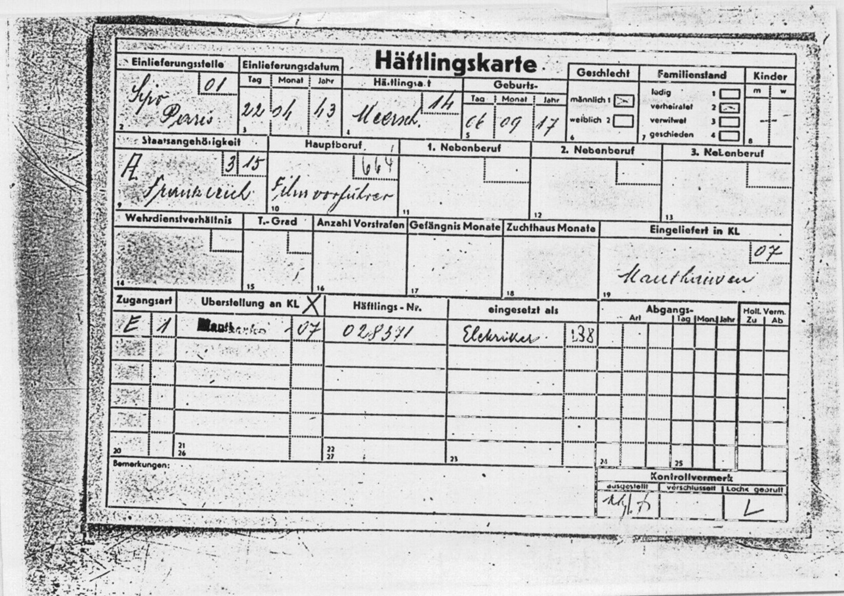 Häftlingskarte
Einlieferungsstelle Einlieferungsdatum Häftlingsart Geburts- Geschlecht Familienstand Kinder
Tag Monat Jahr Tag Monat Jahr m w
01 14
Sipo Paris 22 04 43 06 09 17
männlich 1 ledig 1
weiblich 2 verheiratet 2
verwitwet 3
geschieden 4
2 3 4 5 6 7 8
Staatsangehörigkeit Hauptberuf 1. Nebenberuf 2. Nebenberuf 3. Nebenberuf
A 3 15 664
Frankreich Filmvorführer
9 10 11 12 13
Wehrdienstverhältnis T.-Grad Anzahl Vorstrafen Gefängnis Monate Zuchthaus Monate Eingeliefert in KL
07
Mauthausen
14 15 16 17 18 19
Zugangsart Überstellung an KL X Häftlings-Nr. eingesetzt als Abgangs- Holl. Verm.
Art Tag Mon. Jahr Zu Ab
E 1 Mauthausen 07 028371 Elektriker 138
20 21 22 23 24 25
26 27
Bemerkungen:
Kontrollvermerk
ausgestellt verschlüsselt Lochk. geprüft